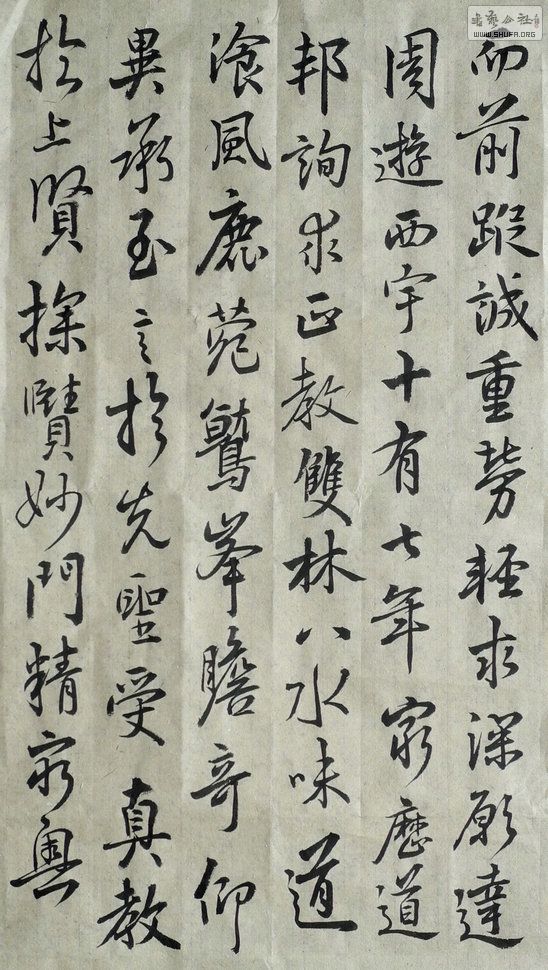 而前蹤誠重勞輕求深願達
周遊西宇十有七年窮歷道
邦詢求正教雙林八水味道
湌風鹿菀鷲峯瞻奇仰
異承至言於先聖受真教
於上賢探賾妙門精窮奧
書藝公社
WWW.SHUFA.ORG